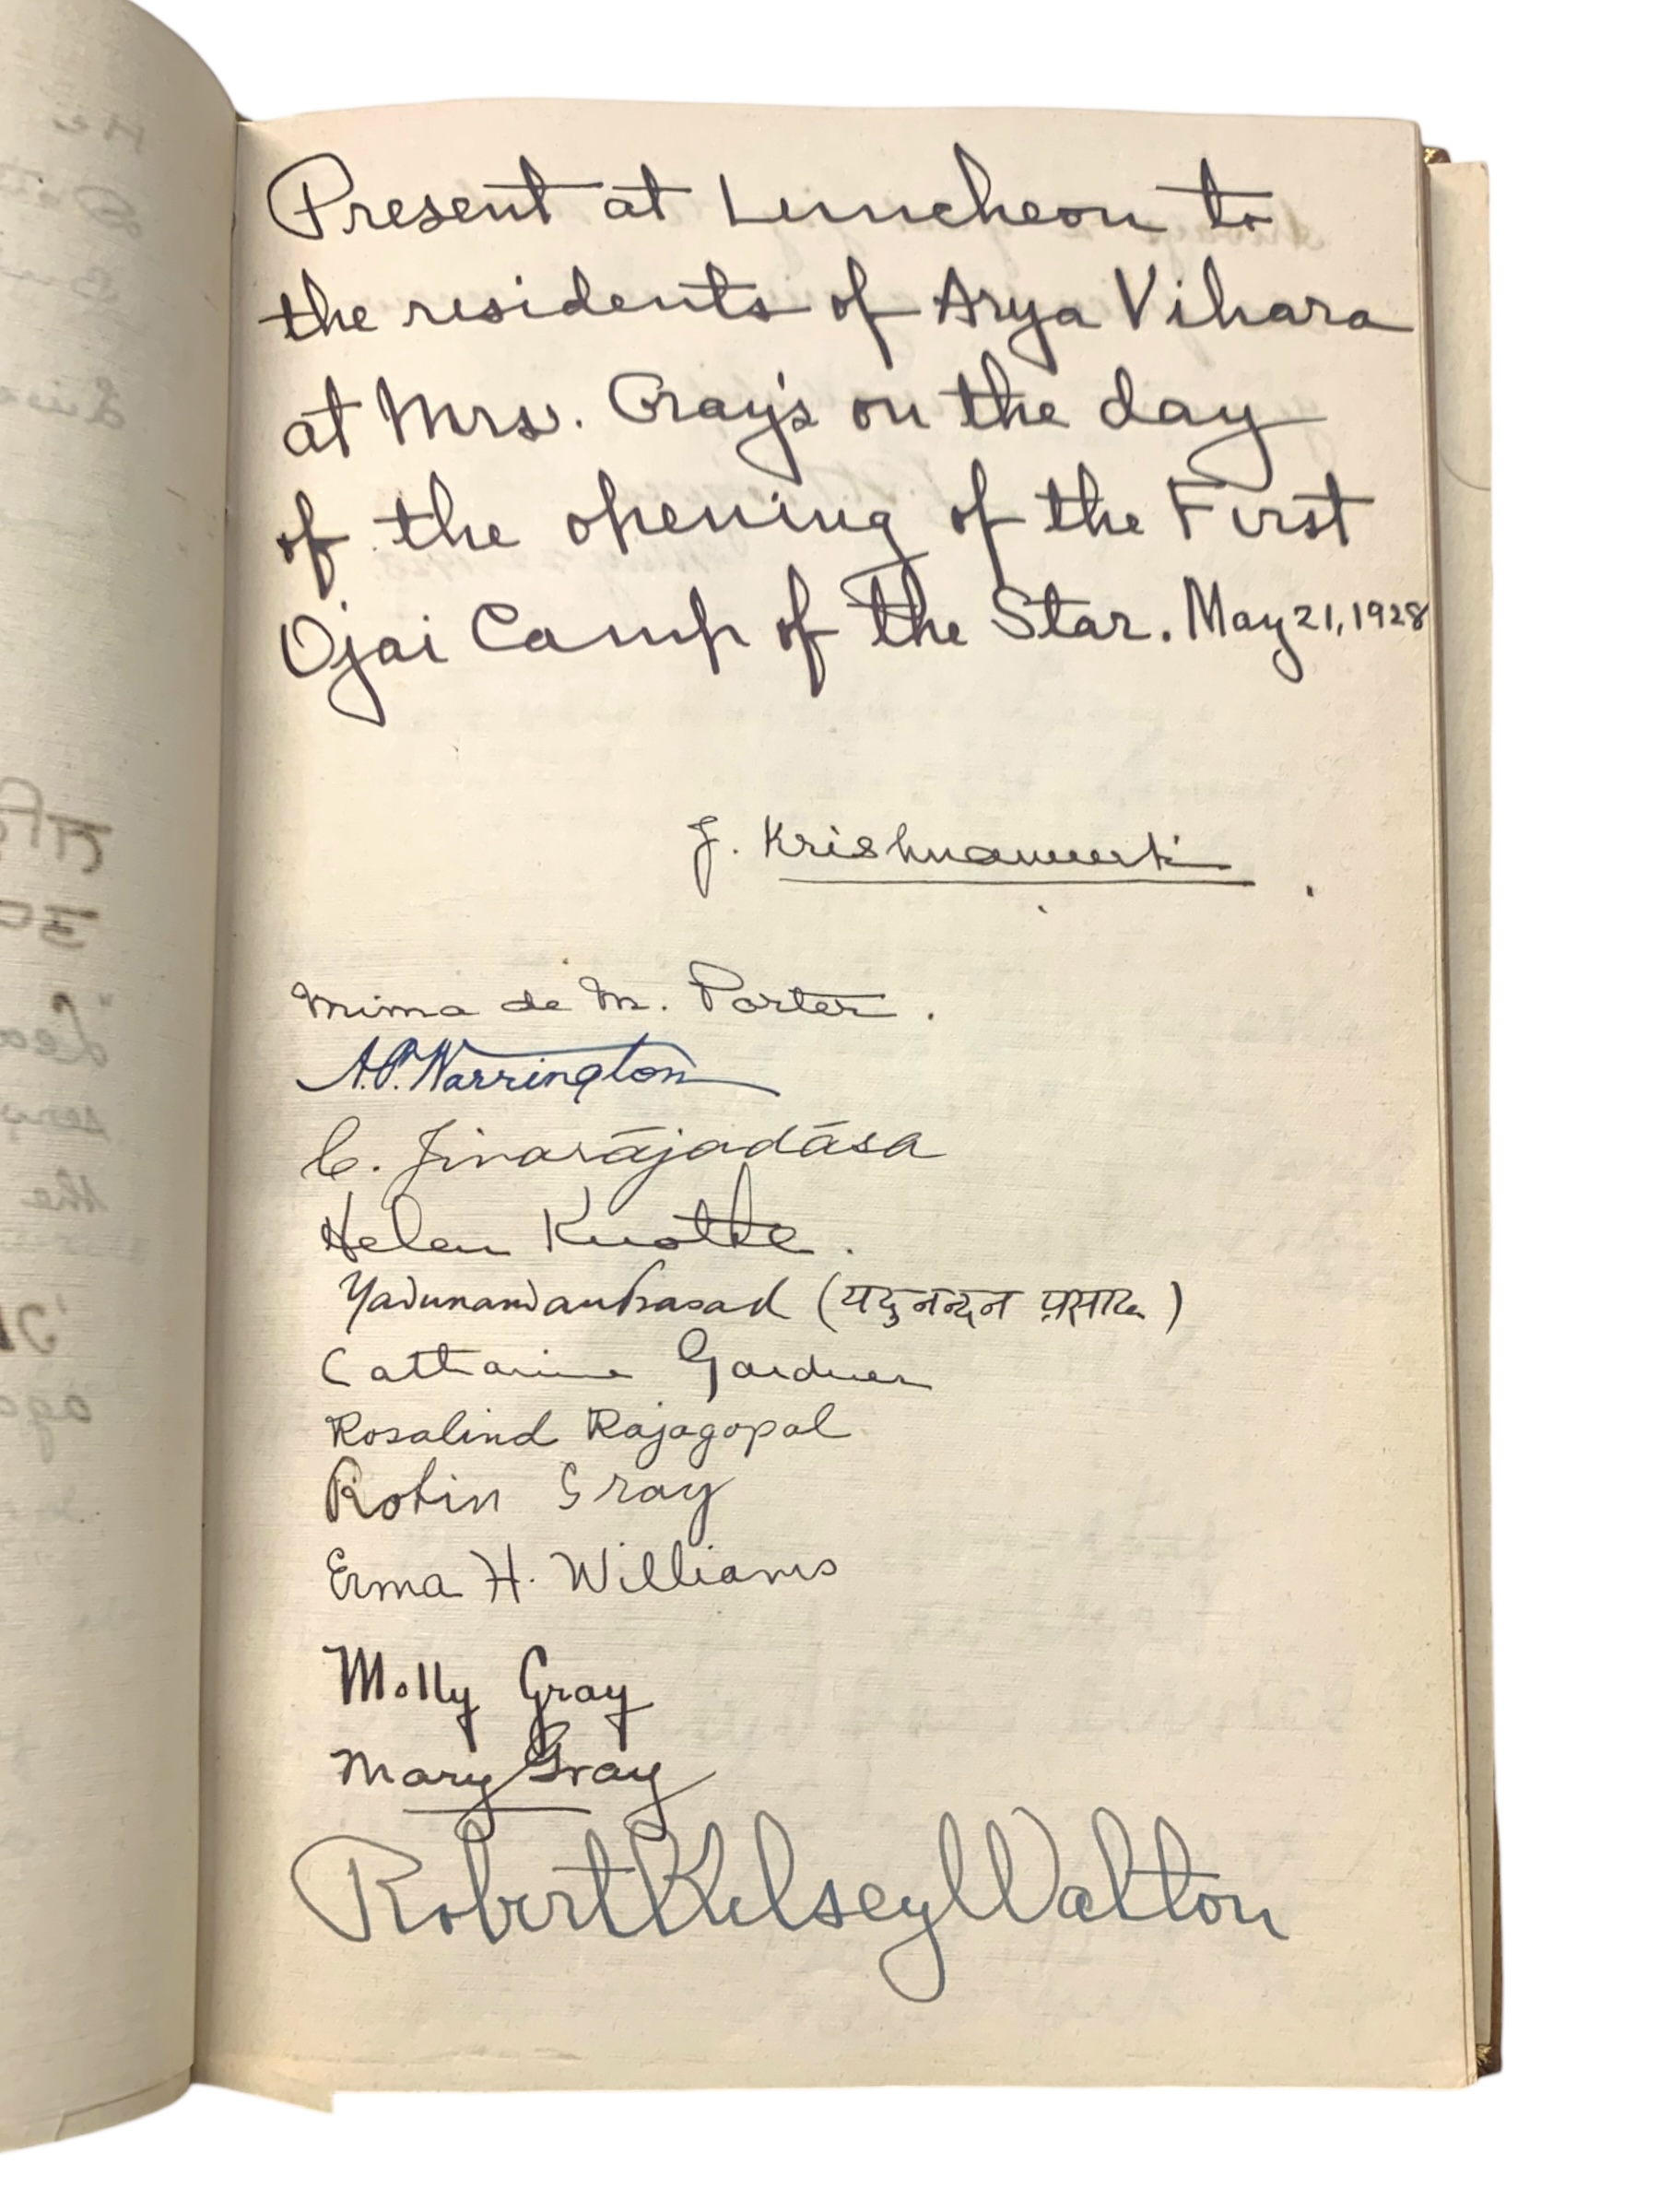 Present at Luncheon to
the residents of Arya Vihara
at Mrs. Gray's on the day
of the opening of the First
Ojai Camp of the Star. May 21, 1928
J. Krishnamurti
Mima de M. Porter.
A.P. Warrington
C. Jinarājadāsa
Helen Knothe.
Yadunandan Prasad (यदुनन्दन प्रसाद)
Catharine Gardner
Rosalind Rajagopal
Robin Gray
Erma H. Williams
Molly Gray
Mary Gray
Robert Kelsey Walton